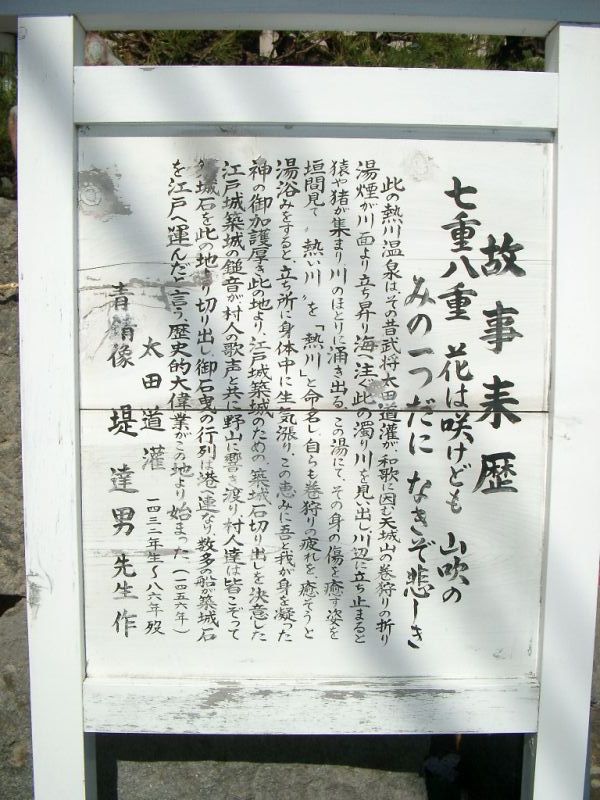 故事来歴
七重八重 花は咲けども 山吹の
みの一つだに なきぞ悲しき
此の熱川温泉は、その昔武将太田道灌が和歌に因む天城山の巻狩りの折り
湯煙が川面より立ち昇り海へ注ぐ此の濁り川を見い出し川辺に立ち止まると
猿や猪が集まり川のほとりに涌き出る、この湯にて、その身の傷を癒す姿を
垣間見て〝熱い川〟を「熱川」と命名し自らも巻狩りの疲れを癒そうと
湯浴みをすると立ち所に身体中に生気漲り、この恵みに吾と我が身を凝った
神の御加護厚き此の地より、江戸城築城のための、築城石切り出しを決意した
江戸城築城の鎚音が、村人の歌声と共に野山に響き渡り村人達は皆こぞって
城石を此の地より切り出し、御石曳の行列は港へ連なり、数多の船が築城石
を江戸へ運んだと言う歴史的大偉業がこの地より始まった、(一四五六年)
太田道灌 一四三二年生〜八六年歿
青銅像 堤達男先生作